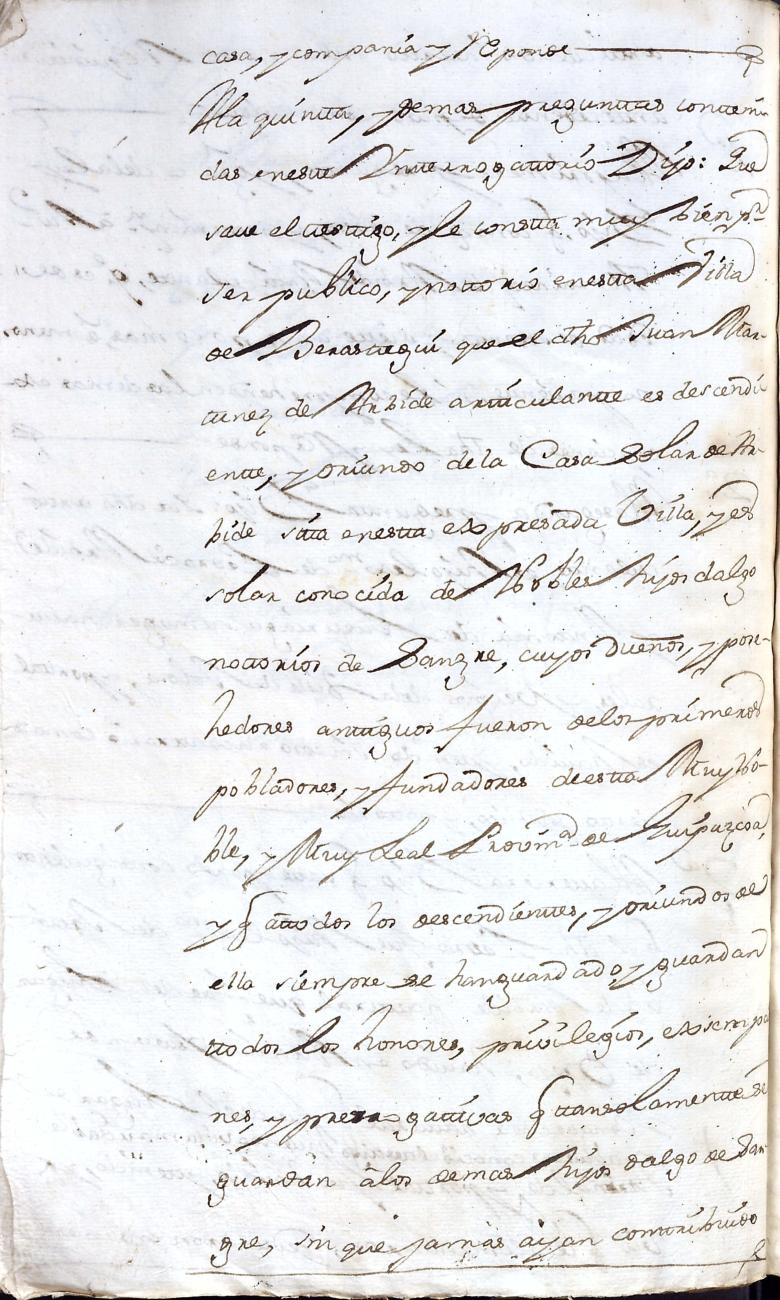 casa, y compania y Responde
Ala quinta, y demas preguntas conteni
das eneste Ynterrogattorio Dijo: Que
save el testigo, y le consta muy bien pr.
ser publico, y nottorio enesta Villa
de Berastegui que el dho Juan Mar-
tinez de Arbide articulante es descendi
ente, y oriundo de la Casa Solar de Ar-
bide sita enesta expresada Villa, y es
solar conocida de Nobles hijos dalgo
nottorios de Sangre, cuyos dueños, y pose-
hedores antiguos fueron delos primeros
pobladores, y fundadores deesta Muy No-
ble, y Muy Leal Provin.a de Guipuzcoa,
y q attodos los descendientes, y oriundos de
ella siempre se hanguardado, y guardan
ttodos los honores, privilegios, exsempcio
nes, y prerrogattivas q ttansolamente se
guardan alos demas hijos dalgo de San-
gre, sin que jamas ayan contribuido